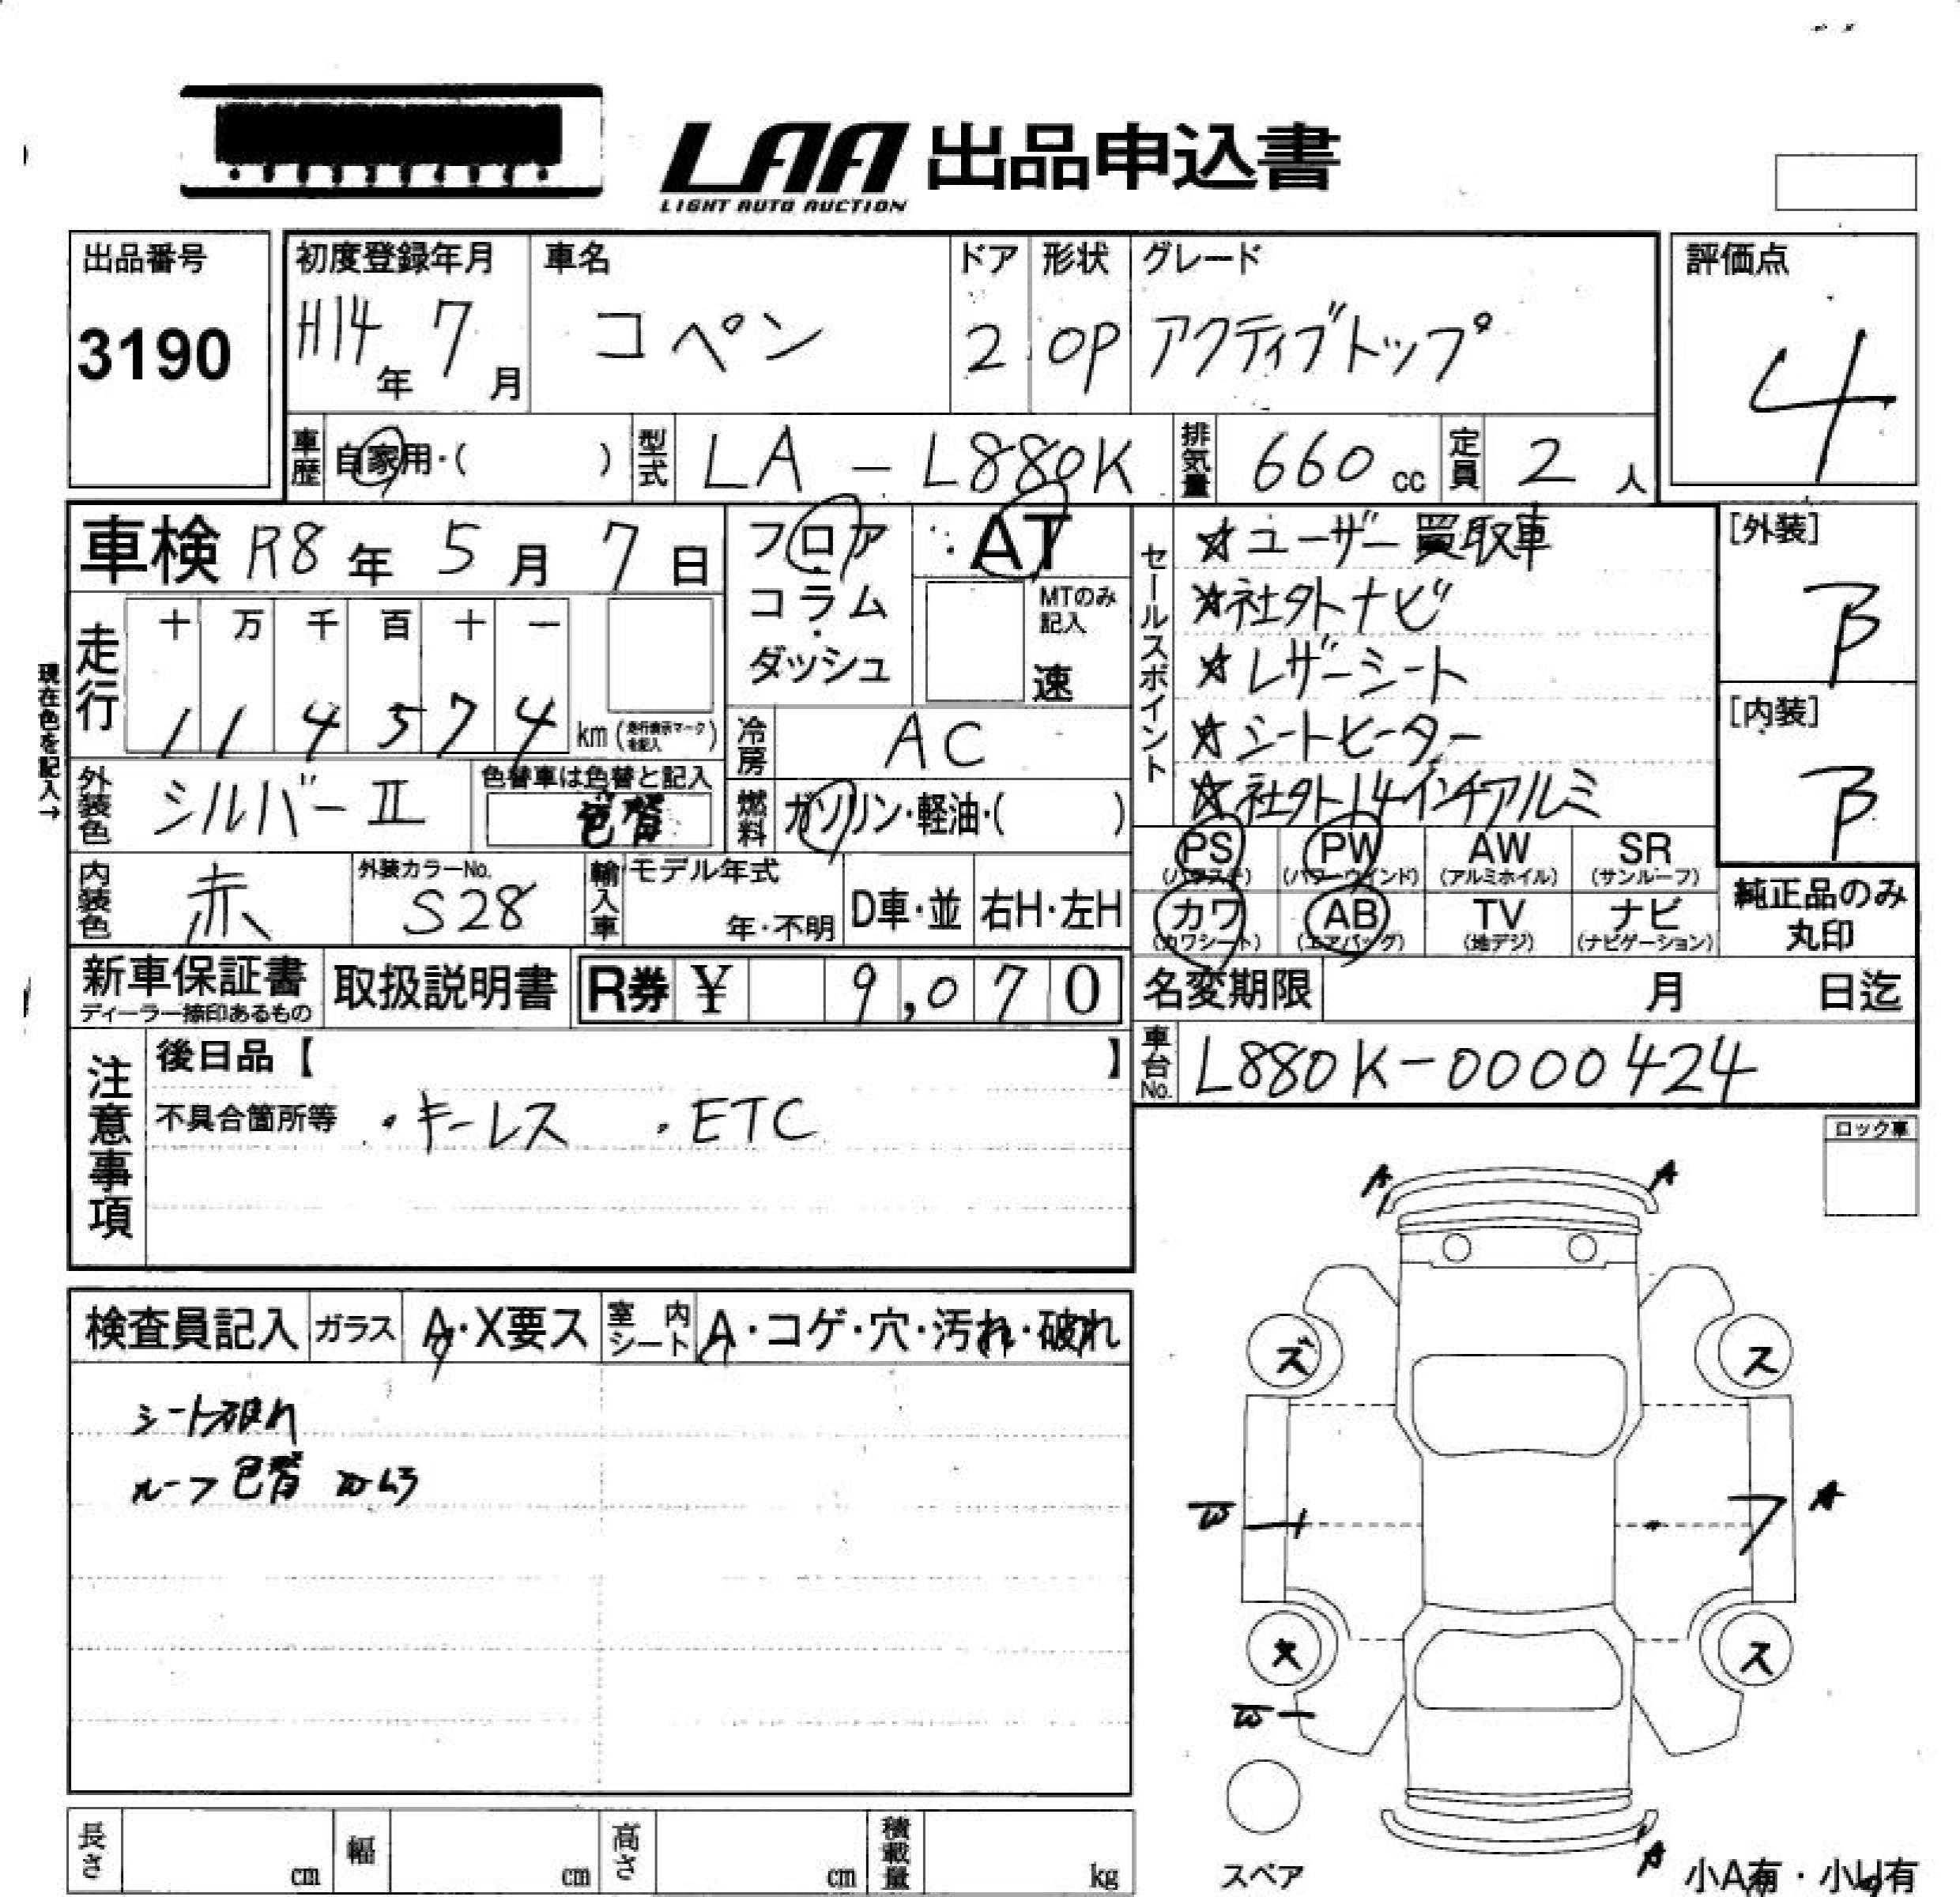 LAA 出品申込書
LIGHT AUTO AUCTION
出品番号
3190
初度登録年月
H14年 7月
車名
コペン
ドア
2
形状
OP
グレード
アクティブトップ
評価点
4
車歴 自家用・( )
型式 LA - L880K
排気量 660 cc
定員 2人
車検 R8年 5月 7日
フロア・コラム・ダッシュ
AT
MTのみ記入
速
セールスポイント
☆ユーザー買取車
☆社外ナビ
☆レザーシート
☆シートヒーター
☆社外14インチアルミ
[外装]
B
[内装]
B
現在色を記入→
走行
十 万 千 百 十 一
1 1 4 5 7 4 km (走行表示マークを記入)
冷房 AC
外装色 シルバーII
色替車は色替と記入
色替
燃料 ガソリン・軽油・( )
内装色 赤
外装カラーNo.
S28
輸入車
モデル年式
年・不明
D車・並
右H・左H
PS (パワステ)
PW (パワーウインド)
AW (アルミホイル)
SR (サンルーフ)
カワ (カワシート)
AB (エアバッグ)
TV (地デジ)
ナビ (ナビゲーション)
純正品のみ丸印
新車保証書
ディーラー捺印あるもの
取扱説明書
R券 ¥ 9,070
名変期限 月 日迄
車台No. L880K-0000424
注意事項
後日品【 】
不具合箇所等 ・キーレス ・ETC
ロック車
検査員記入
ガラス A・X要ス
室内シート A・コゲ・穴・汚れ・破れ
シート破れ
ルーフ色替
A A
ズ ス
W A
ス ス
W
スペア
A
小A有・小U有
長さ cm
幅 cm
高さ cm
積載量 kg